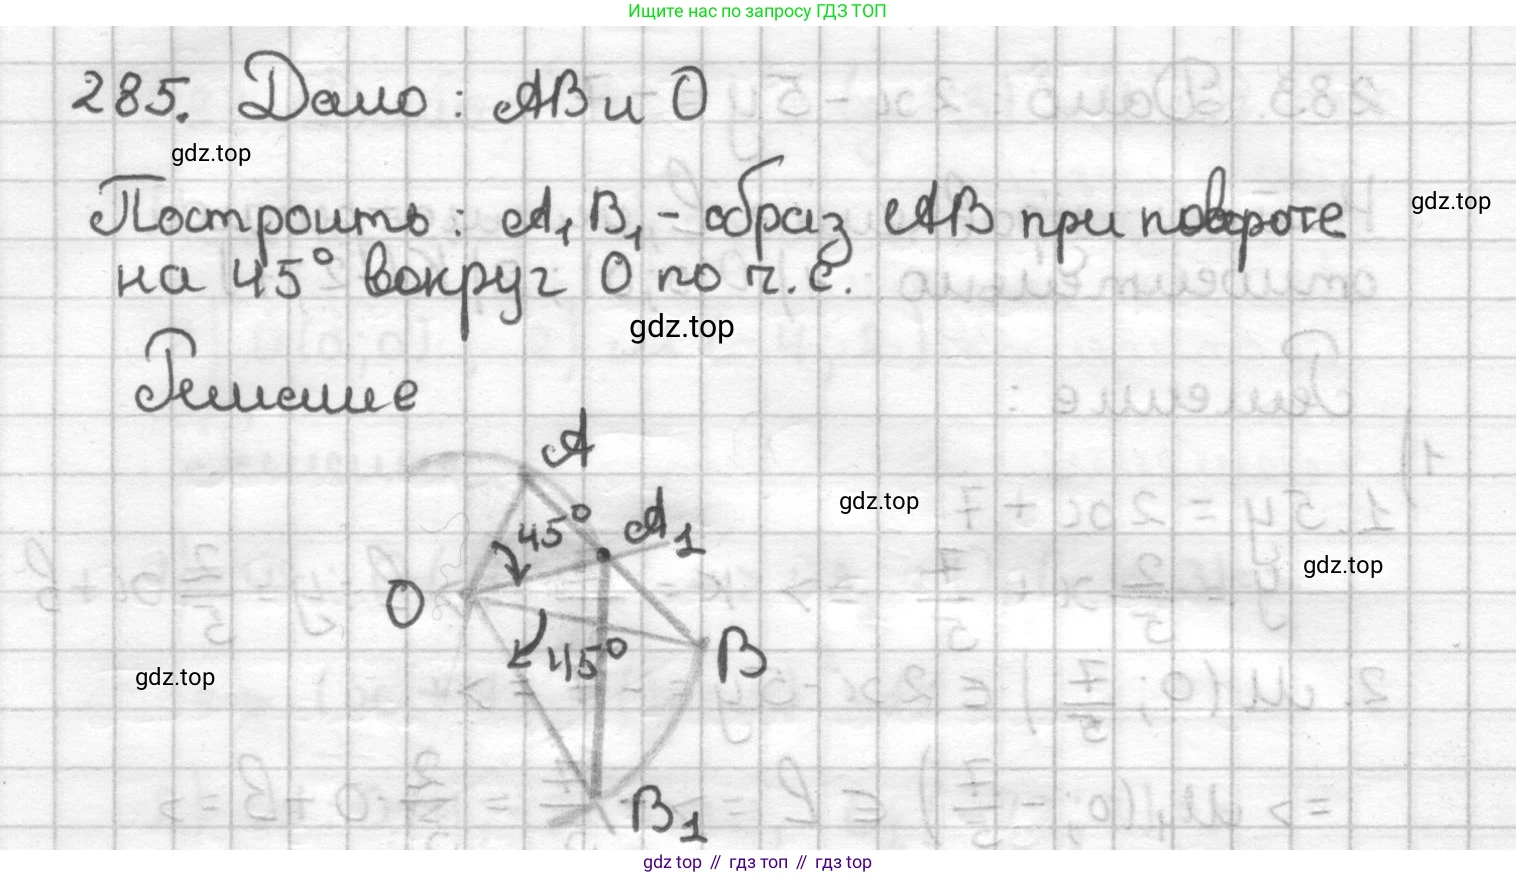 Ищите нас по запросу ГДЗ ТОП
285. Дано: AB и O
gdz.top
Построить: A₁B₁ - образ AB при повороте
gdz.top
на 45° вокруг O по ч.с.
gdz.top
Решение
A
45°
A₁
gdz.top
gdz.top
O
45°
B
gdz.top
B₁
gdz top // гдз топ // гдз top